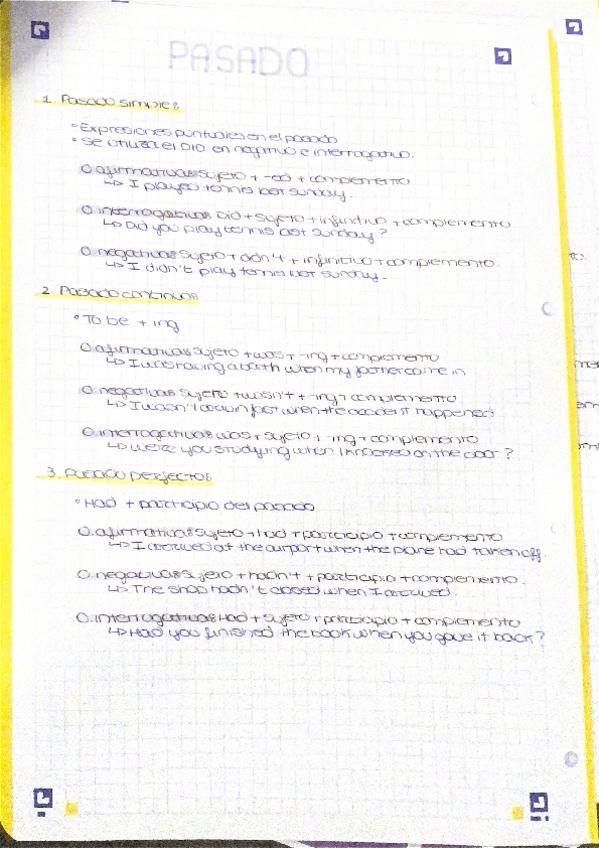 PASADO
1. Pasado simple:
° Expresiones puntuales en el pasado
° Se utiliza el DID en negativo e interrogativo.
O. afirmativa: Sujeto + -ed + complemento
↳ I played tennis last sunday.
O. interrogativa: Did + sujeto + infinitivo + complemento
↳ Did you play tennis last sunday?
O. negativa: Sujeto + didn't + infinitivo + complemento.
↳ I didn't play tennis last sunday.
2. Pasado continuo:
° To be + ing
O. afirmativa: Sujeto + was + -ing + complemento
↳ I was having a bath when my father came in
O. negativa: Sujeto + wasn't + -ing + complemento
↳ I wasn't when the accident happened
O. interrogativa: was + sujeto + -ing + complemento
↳ Were you studying when I knocked on the door?
3. Pasado perfecto:
° Had + participio del pasado
O. afirmativa: Sujeto + had + participio + complemento
↳ I arrived at the airport when the plane had taken off.
O. negativa: Sujeto + hadn't + participio + complemento.
↳ The shop hadn't closed when I arrived.
O. interrogativa: Had + sujeto + participio + complemento
↳ Had you finished the book when you gave it back?